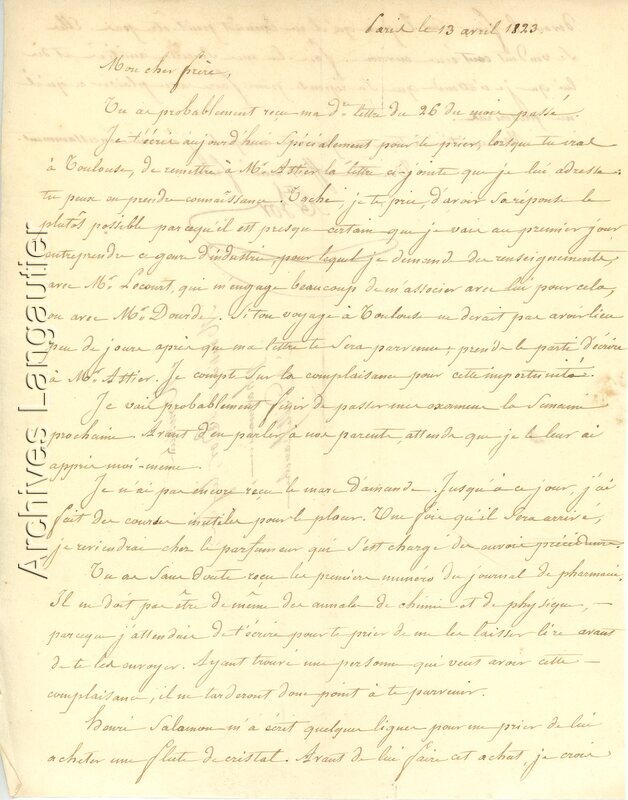 Paris le 13 avril 1823
Mon cher frère,
Tu as probablement reçu ma dre lettre du 26 du mois passé.
Je t'écris aujourd'hui spécialement pour te prier, lorsque tu iras
à Toulouse, de remettre à Mr. Astier la lettre ci-jointe que je lui adresse.
tu peux en prendre connaissance. Tache, je te prie, d'avoir sa réponse le
plutôs possible parcequ'il est presque certain que je vais au premier jour
entreprendre ce genre d'industrie pour lequel je demande des renseignements,
avec Mr. Lecourt, qui m'engage beaucoup de m'associer avec lui pour cela,
ou avec Mr. Dourde. Si ton voyage à Toulouse ne devait pas avoir lieu
peu de jours après que ma lettre te sera parvenue, prends le parti d'écrire
à Mr. Astier. Je compte sur ta complaisance pour cette importunité.
Je vais probablement finir de passer mes examens la semaine
prochaine. Avant d'en parler à nos parents, attends que je le leur ai
appris moi-même.
Je n'ai pas encore reçu le marc d'amande. Jusqu'à ce jour, j'ai
fait des courses inutiles pour le placer. Une fois qu'il sera arrivé,
je reviendrai chez le parfumeur qui s'est chargé des envois précédents.
Tu as sans doute reçu les premiers numéros du journal de pharmacie.
Il ne doit pas être de même des annales de chimie et de physique, –
parceque j'attendais de t'écrire pour te prier de me les laisser lire avant
de te les envoyer. Ayant trouvé une personne qui veut avoir cette –
complaisance, ils ne tarderont donc point à te parvenir.
Henri Salamon m'a écrit quelques lignes pour me prier de lui
acheter une flute de cristal. Avant de lui faire cet achat, je crois
Archives Langautier